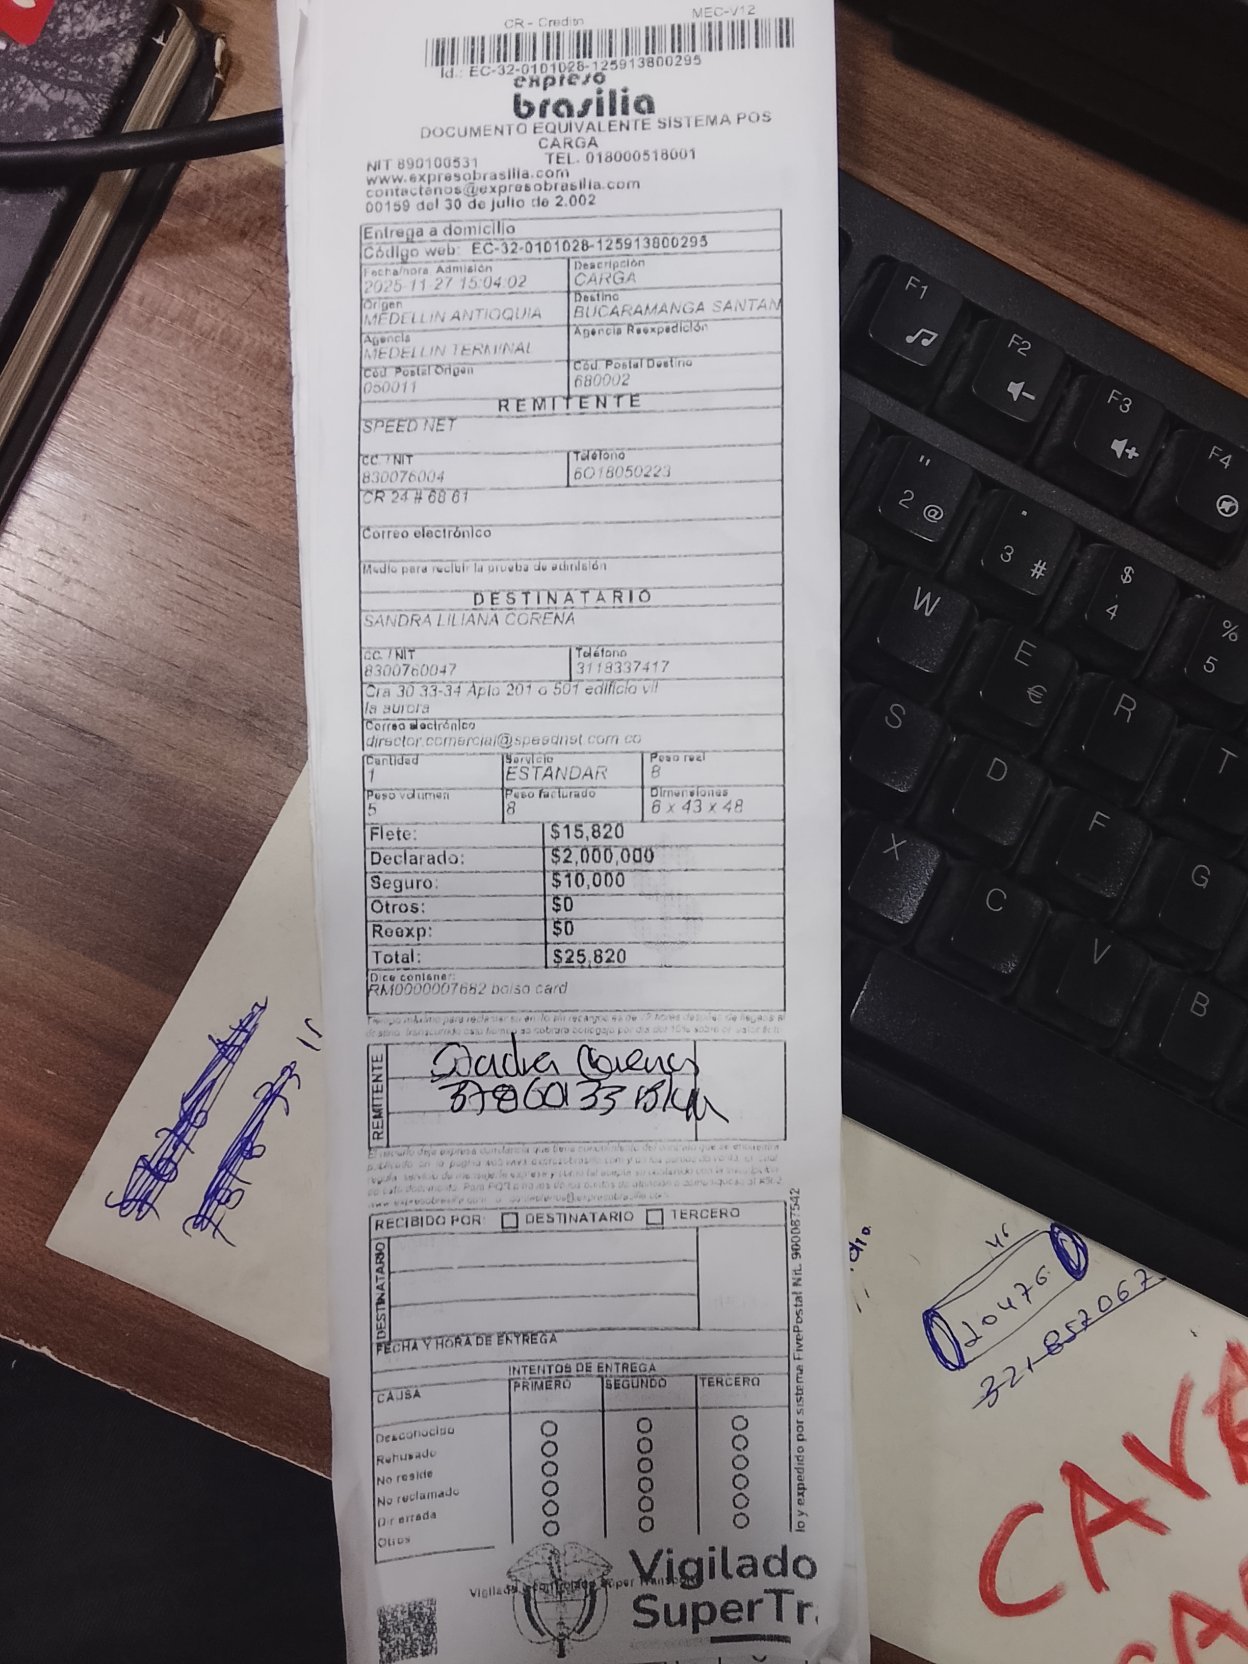 CR - Credito MEC-V12
Id.: EC-32-0101028-125913800295
expreso
brasilia
DOCUMENTO EQUIVALENTE SISTEMA POS
CARGA
NIT 890100531 TEL. 018000518001
www.expresobrasilia.com
contactenos@expresobrasilia.com
00159 del 30 de julio de 2.002
Entrega a domicilio
Código web: EC-32-0101028-125913800295
Fecha/hora Admisión Descripción
2025-11-27 15:04:02 CARGA
Origen Destino
MEDELLIN ANTIOQUIA BUCARAMANGA SANTAN
Agencia Agencia Reexpedición
MEDELLIN TERMINAL
Cod. Postal Origen Cod. Postal Destino
050011 680002
REMITENTE
SPEED NET
CC. / NIT Teléfono
830076004 6018050223
CR 24 # 68 61
Correo electrónico
Medio para recibir la prueba de admisión
DESTINATARIO
SANDRA LILIANA CORENA
CC. / NIT Teléfono
8300760047 3118337417
Cra 30 33-34 Apto 201 o 501 edificio vil
la aurora
Correo electrónico
director.comercial@speednet.com.co
Cantidad Servicio Peso real
1 ESTANDAR 8
Peso volumen Peso facturado Dimensiones
5 8 6 x 43 x 48
Flete: $15,820
Declarado: $2,000,000
Seguro: $10,000
Otros: $0
Reexp: $0
Total: $25,820
Dice contener:
RM0000007682 bolso card
REMITENTE
Sandra Corena
37860133 B/ga
RECIBIDO POR: DESTINATARIO TERCERO
DESTINATARIO
FECHA Y HORA DE ENTREGA
INTENTOS DE ENTREGA
CAUSA PRIMERO SEGUNDO TERCERO
Desconocido
Rehusado
No reside
No reclamado
Dir errada
Otros
lo y expedido por sistema FivePostal Nit. 900087542
Vigilado
SuperTr
F1
F2
F3
F4
" 2 @
3 #
$ 4
% 5
W
E €
R
T
S
D
F
G
X
C
V
B
20476
321-852067
CAV